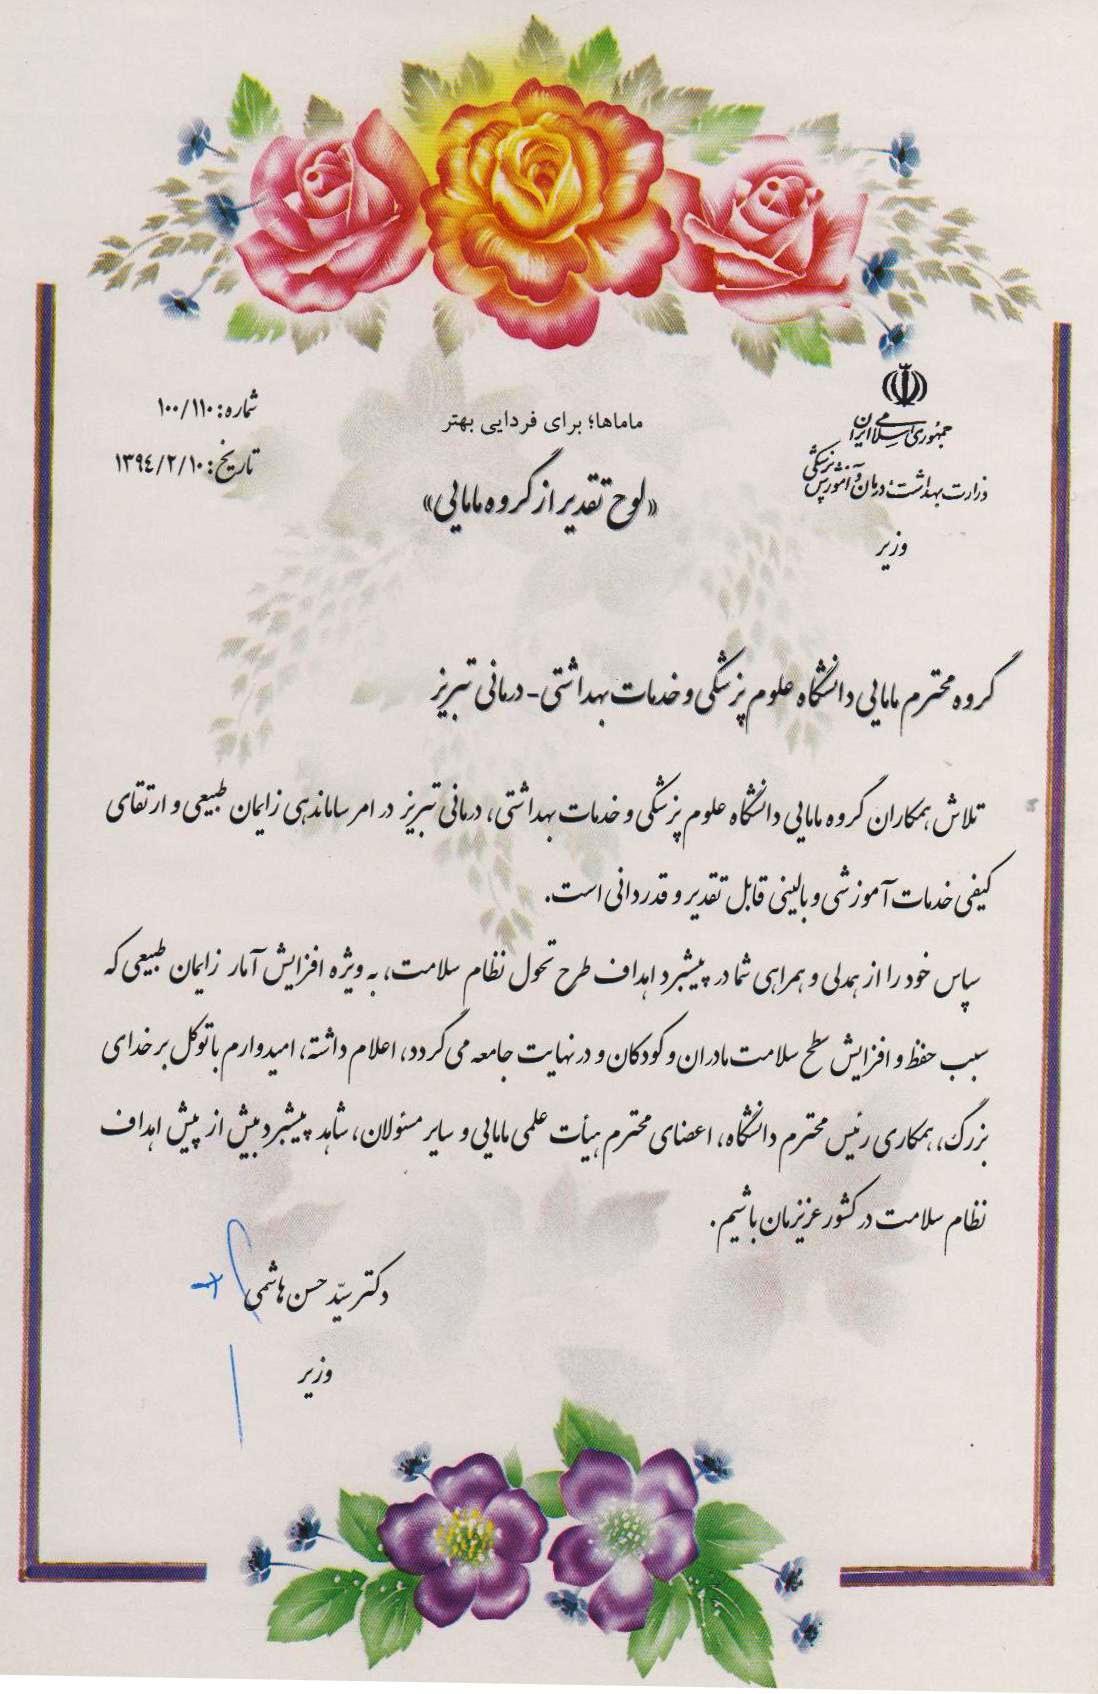 جمهوری اسلامی ایران
وزارت بهداشت، درمان و آموزش پزشکی
وزیر
شماره: ۱۰۰/۱۱۰
تاریخ: ۱۳۹٤/۲/۱۰
ماماها؛ برای فردایی بهتر
«لوح تقدیر از گروه مامایی»
گروه محترم مامایی دانشگاه علوم پزشکی و خدمات بهداشتی - درمانی تبریز
تلاش همکاران گروه مامایی دانشگاه علوم پزشکی و خدمات بهداشتی، درمانی تبریز در امر ساماندهی زایمان طبیعی و ارتقای
کیفی خدمات آموزشی و بالینی قابل تقدیر و قدردانی است.
سپاس خود را از همدلی و همراهی شما در پیشبرد اهداف طرح تحول نظام سلامت، به ویژه افزایش آمار زایمان طبیعی که
سبب حفظ و افزایش سطح سلامت مادران و کودکان و در نهایت جامعه می گردد، اعلام داشته، امیدوارم با توکل بر خدای
بزرگ، همکاری رئیس محترم دانشگاه، اعضای محترم هیأت علمی مامایی و سایر مسئولان، شاهد پیشبرد بیش از پیش اهداف
نظام سلامت در کشور عزیزمان باشیم.
دکتر سیّد حسن هاشمی
وزیر